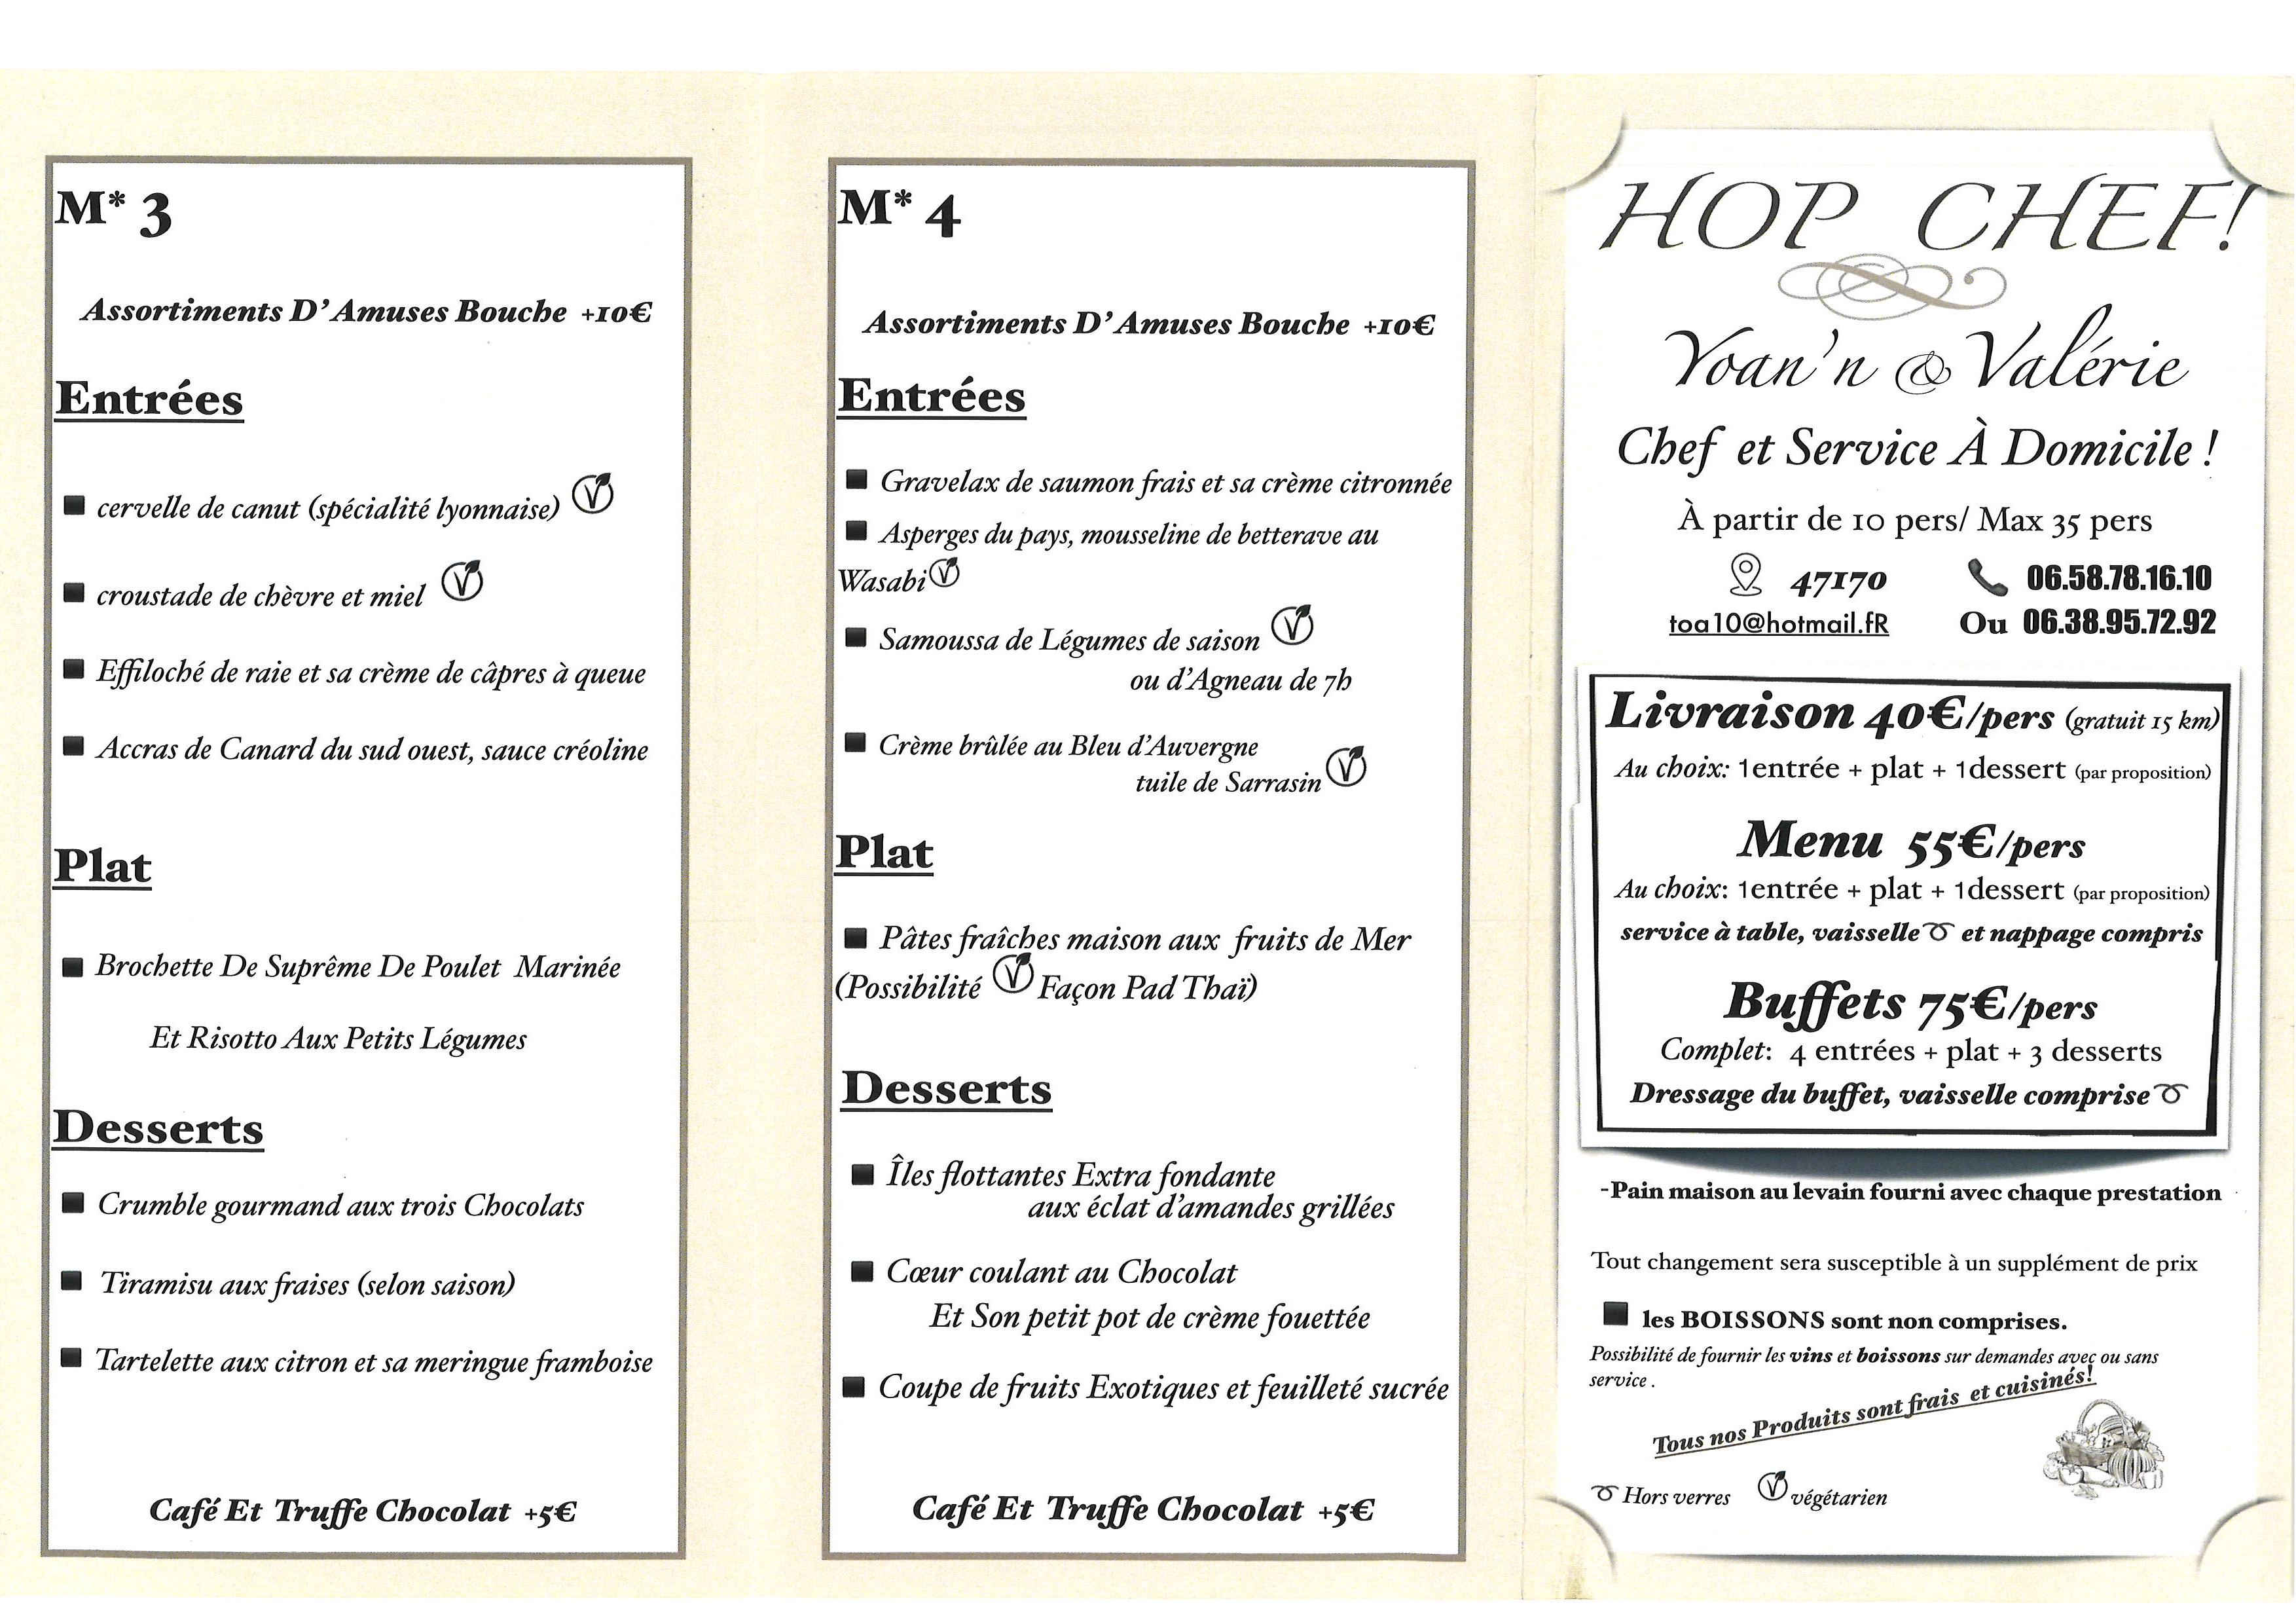 M* 3
Assortiments D'Amuses Bouche +10€
Entrées
cervelle de canut (spécialité lyonnaise)
croustade de chèvre et miel
Effiloché de raie et sa crème de câpres à queue
Accras de Canard du sud ouest, sauce créoline
Plat
Brochette De Suprême De Poulet Marinée
Et Risotto Aux Petits Légumes
Desserts
Crumble gourmand aux trois Chocolats
Tiramisu aux fraises (selon saison)
Tartelette aux citron et sa meringue framboise
Café Et Truffe Chocolat +5€
M* 4
Assortiments D'Amuses Bouche +10€
Entrées
Gravelax de saumon frais et sa crème citronnée
Asperges du pays, mousseline de betterave au
Wasabi
Samoussa de Légumes de saison
ou d'Agneau de 7h
Crème brûlée au Bleu d'Auvergne
tuile de Sarrasin
Plat
Pâtes fraîches maison aux fruits de Mer
(Possibilité V Façon Pad Thaï)
Desserts
Îles flottantes Extra fondante
aux éclat d'amandes grillées
Cœur coulant au Chocolat
Et Son petit pot de crème fouettée
Coupe de fruits Exotiques et feuilleté sucrée
Café Et Truffe Chocolat +5€
HOP CHEF!
Yoan'n & Valérie
Chef et Service À Domicile !
À partir de 10 pers/ Max 35 pers
47170 06.58.78.16.10
toa10@hotmail.fR Ou 06.38.95.72.92
Livraison 40€/pers (gratuit 15 km)
Au choix: 1entrée + plat + 1dessert (par proposition)
Menu 55€/pers
Au choix: 1entrée + plat + 1dessert (par proposition)
service à table, vaisselle et nappage compris
Buffets 75€/pers
Complet: 4 entrées + plat + 3 desserts
Dressage du buffet, vaisselle comprise
-Pain maison au levain fourni avec chaque prestation
Tout changement sera susceptible à un supplément de prix
les BOISSONS sont non comprises.
Possibilité de fournir les vins et boissons sur demandes avec ou sans
service .
Tous nos Produits sont frais et cuisinés!
Hors verres V végétarien